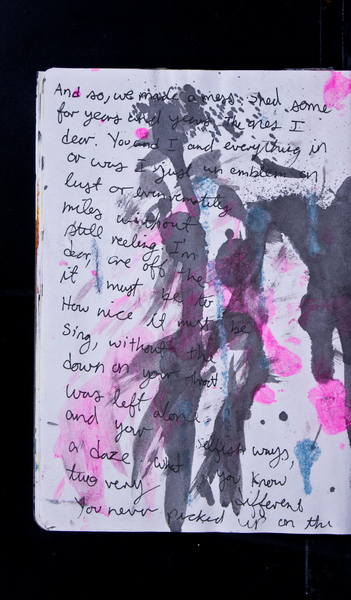 And so, we made a mess. Shed some
for years and years the ones I
dear. You and I and everything in
or was I just an emblem on
lust or
miles without
still reeling, I'm
dear, are off the
it must be to
How nice it must be
sing, without the
down on your
was left alone
and your selfish ways,
a daze what is you know
two very different
You never picked up on the